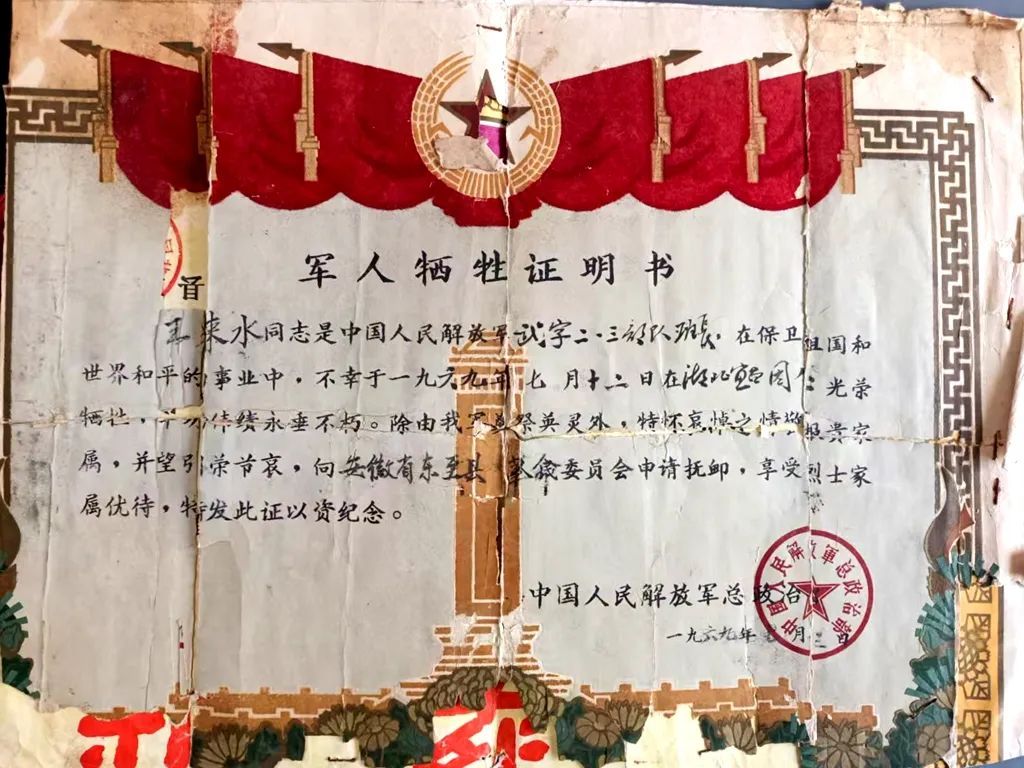 军人牺牲证明书
王来水同志是中国人民解放军武字二·三部队班长,在保卫祖国和
世界和平的事业中,不幸于一九六九年七月十二日在湖北 光荣
牺牲,永垂不朽。除由我军 祭英灵外,特怀哀悼之情 贵家
属,并望引荣节哀,向安徽省东至县 委员会申请抚卹,享受烈士家
属优待,特发此证以资纪念。
中国人民解放军总政治
中国人民解放軍总政治部
一九六九年 月 日